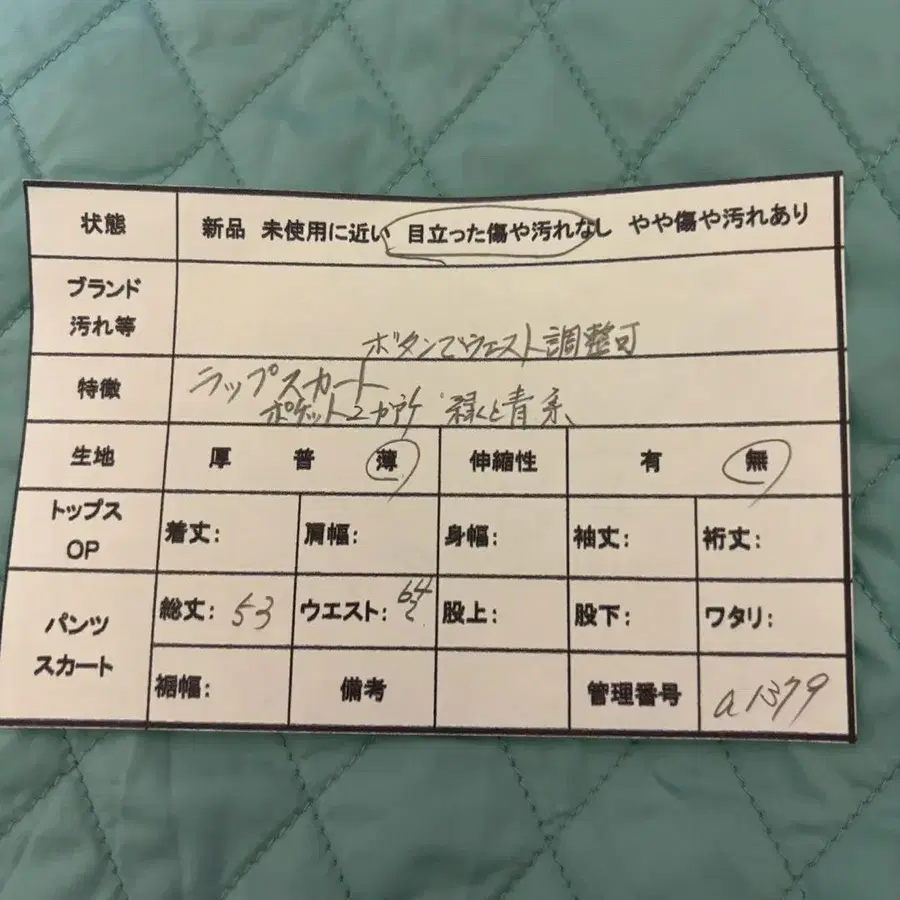 状態 新品 未使用に近い 目立った傷や汚れなし やや傷や汚れあり
ブランド
汚れ等
ボタンでウエスト調整可
特徴 ラップスカート
ポケット2か所 緑と青系
生地 厚 普 薄 伸縮性 有 無
トップス
OP
着丈: 肩幅: 身幅: 袖丈: 裄丈:
パンツ
スカート
総丈: 53 ウエスト: 64 股上: 股下: ワタリ:
裾幅: 備考 管理番号 a1379